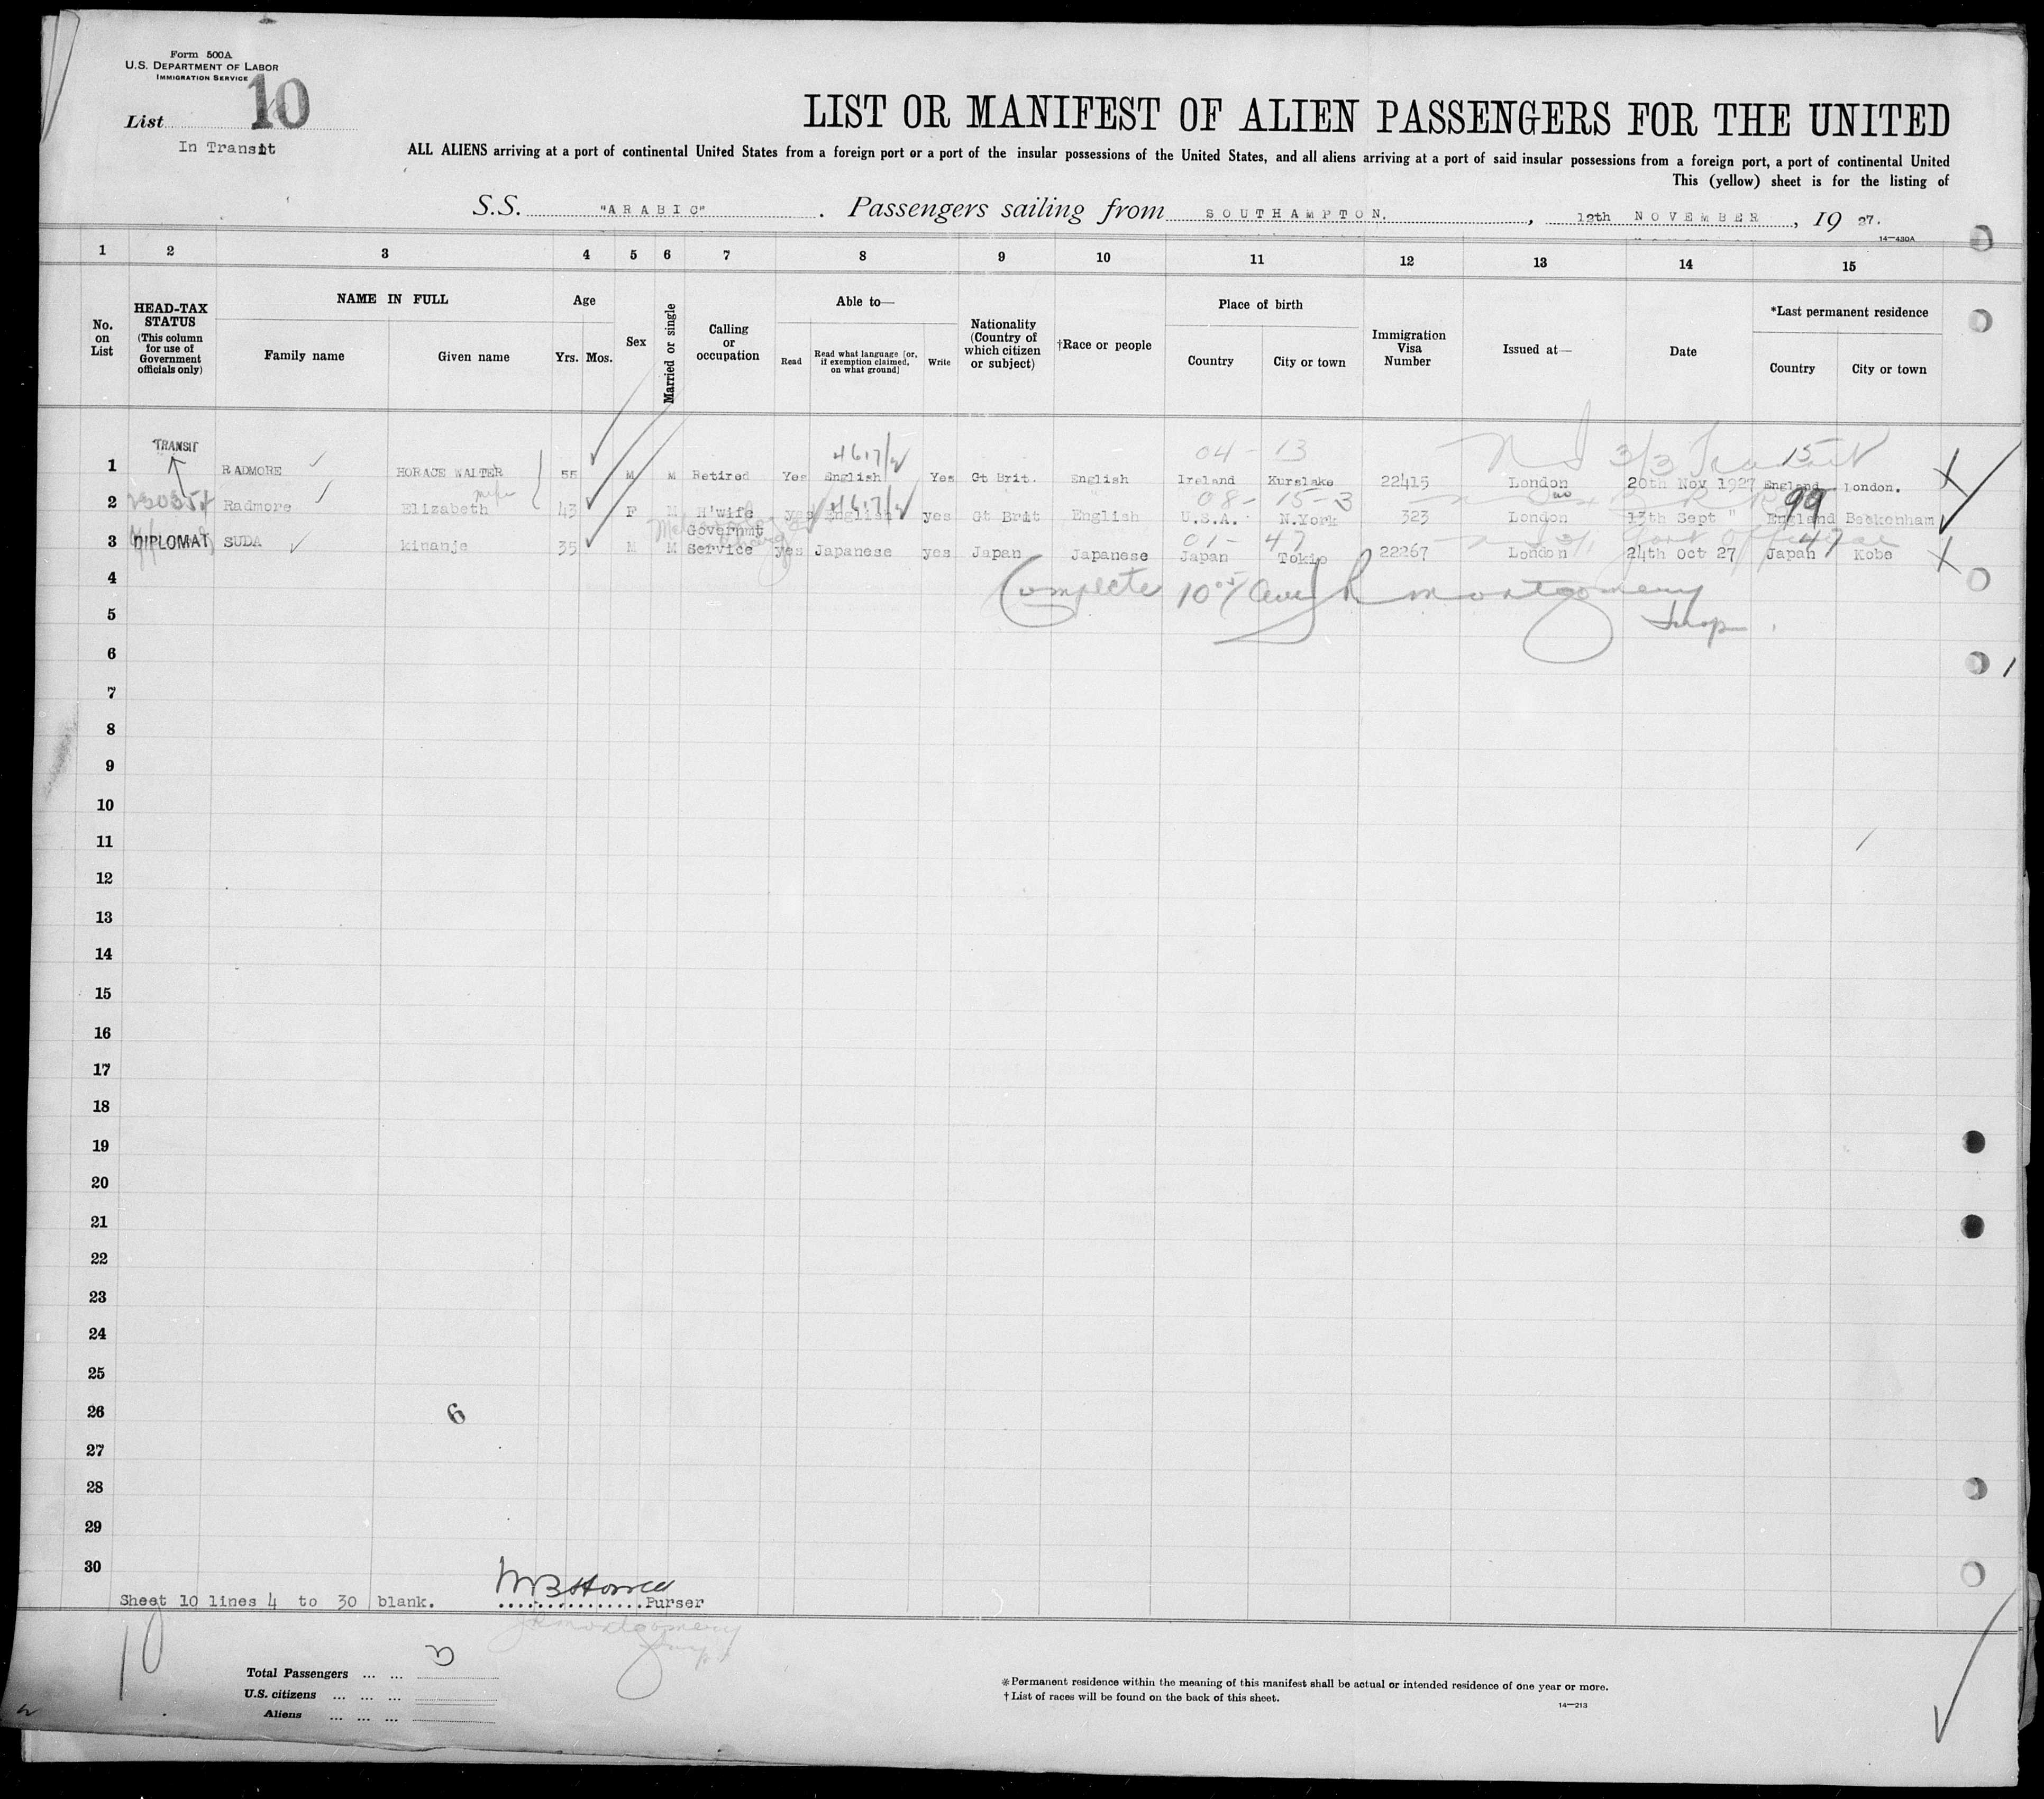 Form 500A
U.S. DEPARTMENT OF LABOR
IMMIGRATION SERVICE
List 10
In Transit
LIST OR MANIFEST OF ALIEN PASSENGERS FOR THE UNITED
ALL ALIENS arriving at a port of continental United States from a foreign port or a port of the insular possessions of the United States, and all aliens arriving at a port of said insular possessions from a foreign port, a port of continental United
This (yellow) sheet is for the listing of
S.S. "ARABIC". Passengers sailing from SOUTHAMPTON., 12th NOVEMBER, 19 27.
14—430A
1 2 3 4 5 6 7 8 9 10 11 12 13 14 15
No. on List
HEAD-TAX STATUS (This column for use of Government officials only)
NAME IN FULL
Family name
Given name
Age
Yrs. Mos.
Sex
Married or single
Calling or occupation
Able to—
Read
Read what language [or, if exemption claimed, on what ground]
Write
Nationality (Country of which citizen or subject)
†Race or people
Place of birth
Country
City or town
Immigration Visa Number
Issued at—
Date
*Last permanent residence
Country
City or town
TRANSIT 04 - 13 3/3 Transit 15
1 RADMORE HORACE WALTER 55 M M Retired Yes English Yes Gt Brit. English Ireland Kurslake 22415 London 20th Nov 1927 England London.
08 - 15 - 3 99
2 Radmore Elizabeth 43 F M H'wife yes English yes Gt Brit English U.S.A. N.York 323 London 13th Sept " England Beckenham
01 - 47 Govt Official 47
3 DIPLOMAT SUDA kinanje 35 M M Governmt Service yes Japanese yes Japan Japanese Japan Tokio 22267 London 24th Oct 27 Japan Kobe
4 Complete Montgomery
5 Insp.
6
7
8
9
10
11
12
13
14
15
16
17
18
19
20
21
22
23
24
25
26 6
27
28
29
30
Sheet 10 lines 4 to 30 blank. Purser
10 Montgomery
Insp
Total Passengers ... ... 3
U.S. citizens ... ... ...
Aliens ... ... ...
*Permanent residence within the meaning of this manifest shall be actual or intended residence of one year or more.
†List of races will be found on the back of this sheet.
14—213